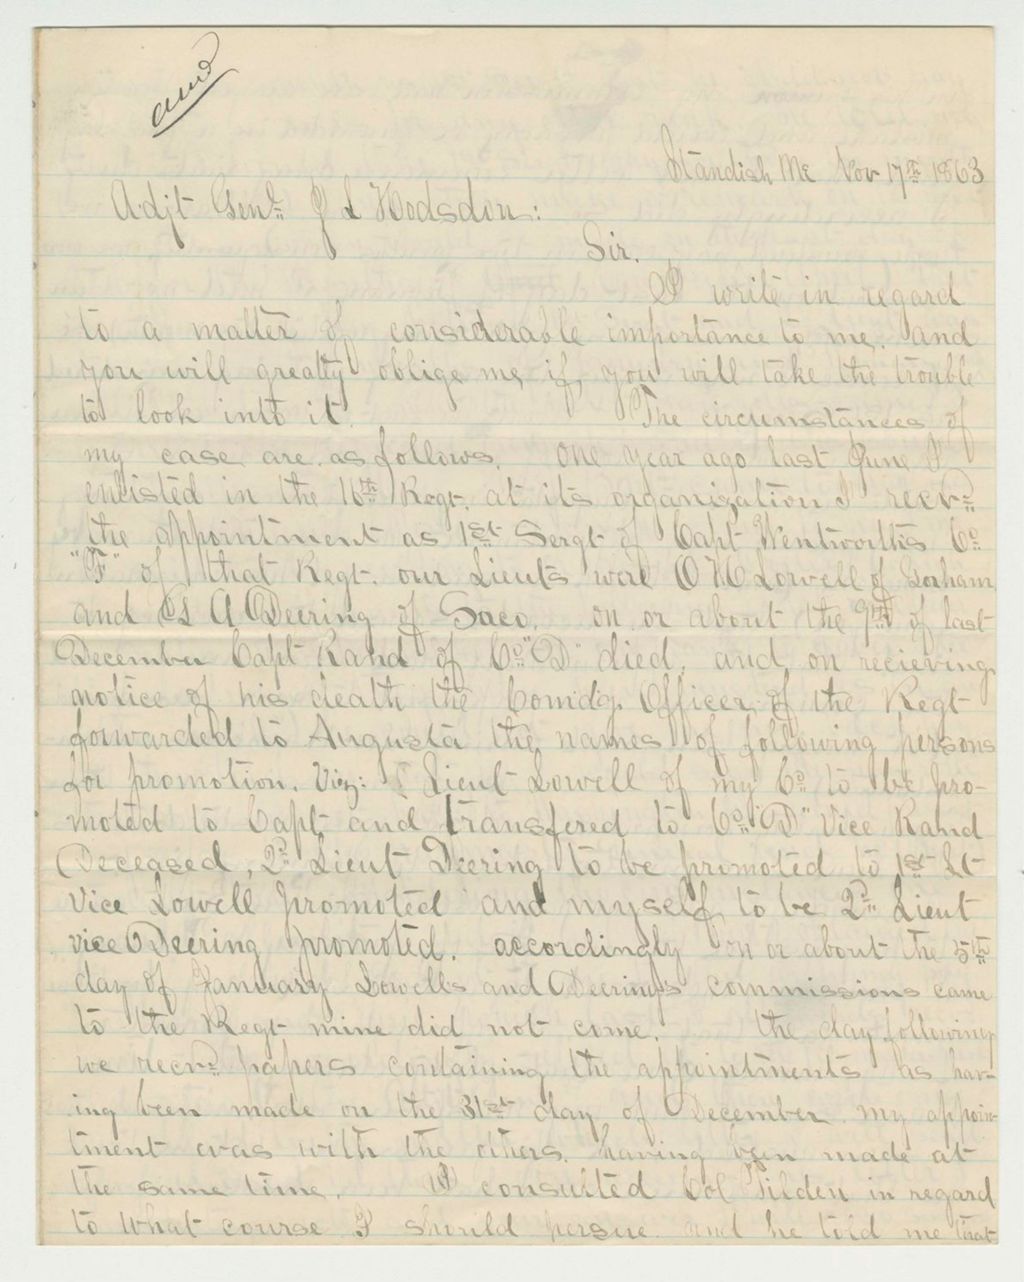 and
Standish Me Nov 17th 1863
Adjt Genl. J L Hodsdon:
Sir.
I write in regard
to a matter of considerable importance to me, and
you will greatly oblige me, if, you will take the trouble
to look into it. The circumstances of
my case are as follows. One year ago last June I
enlisted in the 16th Regt. at its organization I recvd
the appointment as 1st Sergt of Capt Wentworths Co
"F" of that Regt. our Lieuts were O H Lowell of Gorham
and G A Deering of Saco. on or about the 9th of last
December Capt Rand of Co "D" died, and on recieving
notice of his death the Comdg. Officer of the Regt
forwarded to Augusta the names of following persons
for promotion. Viz: Lieut Lowell of my Co to be pro-
moted to Capt and transfered to Co "D" Vice Rand
Deceased, 2d Lieut Deering to be promoted to 1st Lt
Vice Lowell promoted and myself to be 2d Lieut
vice Deering promoted. accordingly on or about the 5th
day of January Lowells and Deerings commissions came
to the Regt mine did not come. the day following
we recvd papers containing the appointments as hav-
ing been made on the 31st day of December my appoin-
tment was with the others, having been made at
the same time. I consulted Col Tilden in regard
to what course I should persue and he told me that